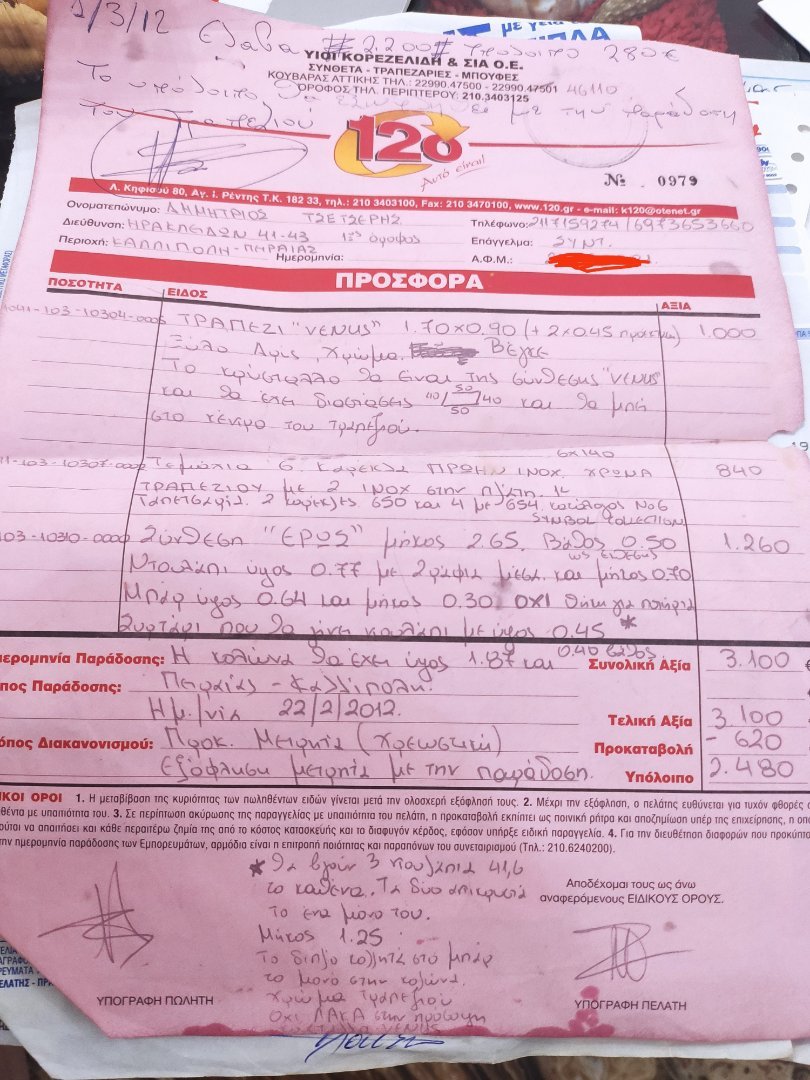 1/3/12 Ελαβα #2.200# υπόλοιπο 280€
ΥΙΟΙ ΚΟΡΕΖΕΛΙΔΗ & ΣΙΑ Ο.Ε.
ΣΥΝΘΕΤΑ - ΤΡΑΠΕΖΑΡΙΕΣ - ΜΠΟΥΦΕΣ
ΚΟΥΒΑΡΑΣ ΑΤΤΙΚΗΣ ΤΗΛ.: 22990.47500 - 22990.47501 46110
ΟΡΟΦΟΣ ΤΗΛ. ΠΕΡΙΠΤΕΡΟΥ: 210.3403125
Το υπόλοιπο θα με την παράδοση
του τραπεζιού
120
Αυτό είναι!
№ 0979
Λ. Κηφισού 80, Αγ. Ι. Ρέντης Τ.Κ. 182 33, τηλ.: 210 3403100, Fax: 210 3470100, www.120.gr - e-mail: k120@otenet.gr
Ονοματεπώνυμο: ΔΗΜΗΤΡΙΟΣ ΤΣΕΤΣΕΡΗΣ
Τηλέφωνο: 2117159274/6973653660
Διεύθυνση: ΗΡΑΚΛΕΙΔΩΝ 41-43 1ος όροφος
Επάγγελμα: ΣΥΝΤ.
Περιοχή: ΚΑΛΛΙΠΟΛΗ-ΠΕΙΡΑΙΑΣ
Ημερομηνία:
Α.Φ.Μ.:
ΠΡΟΣΦΟΡΑ
ΠΟΣΟΤΗΤΑ ΕΙΔΟΣ ΑΞΙΑ
1041-103-10304-0005 ΤΡΑΠΕΖΙ "VENUS" 1.70×0.90 (+2×0.45 προεκτ/α) 1.000
Ξύλο Δρυς, Χρώμα Βέγγε
Το κρύσταλλο θα είναι της σύνθεσης "VENUS"
και θα έχει διαστάσεις 40 50 50 40 και θα μπει
στο κέντρο του τραπεζιού.
6×140
11-103-10307-0002 Τεμάχια 6. Καρέκλα ΠΡΩΗΝ ΙΝΟΧ. ΧΡΩΜΑ 840
ΤΡΑΠΕΖΙΟΥ με 2 ΙΝΟΧ στην πλάτη
2 καρέκλες 650 και 4 με 654, κατάλογος Νο6
SYMBOL COLLECTION
103-10310-0000 Σύνθεση "ΕΡΩΣ" μήκος 2.65, βάθος 0.50 1.260
ως έκθεσης
Ντουλάπι ύψος 0.77 με 2 ράφια μέσα και μήκος 0.70
Μπαρ ύψος 0.64 και μήκος 0.30 ΟΧΙ θήκη για ποτήρια
Συρτάρι που θα γίνει ντουλάπι με ύψος 0.45 *
μερομηνία Παράδοσης: Η κολώνα θα έχει ύψος 1.87 και 0.40 βάθος. Συνολική Αξία 3.100
πος Παράδοσης: Πειραιάς - Καλλίπολη.
Ημ/νια 22/2/2012. Τελική Αξία 3.100
όπος Διακανονισμού: Προκ. Μετρητά (χρεωστική) Προκαταβολή - 620
Εξόφληση μετρητά με την παράδοση. Υπόλοιπο 2.480
ΙΚΟΙ ΟΡΟΙ 1. Η μεταβίβαση της κυριότητας των πωληθέντων ειδών γίνεται μετά την ολοσχερή εξόφλησή τους. 2. Μέχρι την εξόφληση, ο πελάτης ευθύνεται για τυχόν φθορές
θέντα με υπαιτιότητα του. 3. Σε περίπτωση ακύρωσης της παραγγελίας με υπαιτιότητα του πελάτη, η προκαταβολή εκπίπτει ως ποινική ρήτρα και αποζημίωση υπέρ της επιχείρησης, η οπο
ούται να απαιτήσει και κάθε περαιτέρω ζημία της από το κόστος κατασκευής και το διαφυγόν κέρδος, εφόσον υπήρξε ειδική παραγγελία. 4. Για την διευθέτηση διαφορών που προκύπτο
την ημερομηνία παράδοσης των Εμπορευμάτων, αρμόδια είναι η επιτροπή ποιότητας και παραπόνων του συνεταιρισμού (Τηλ.: 210.6240200).
* θα βγουν 3 ντουλάπια 41,6
το καθένα. Τα δύο
Το ένα μόνο του.
Μήκος 1.25
Το διπλό κολλητά στο μπαρ
το μονό στην κολώνα.
Χρώμα Τραπεζιού
Οχι ΛΑΚΑ στην πρόσοψη
VENUS
Αποδέχομαι τους ως άνω
αναφερόμενους ΕΙΔΙΚΟΥΣ ΟΡΟΥΣ.
ΥΠΟΓΡΑΦΗ ΠΩΛΗΤΗ
ΥΠΟΓΡΑΦΗ ΠΕΛΑΤΗ